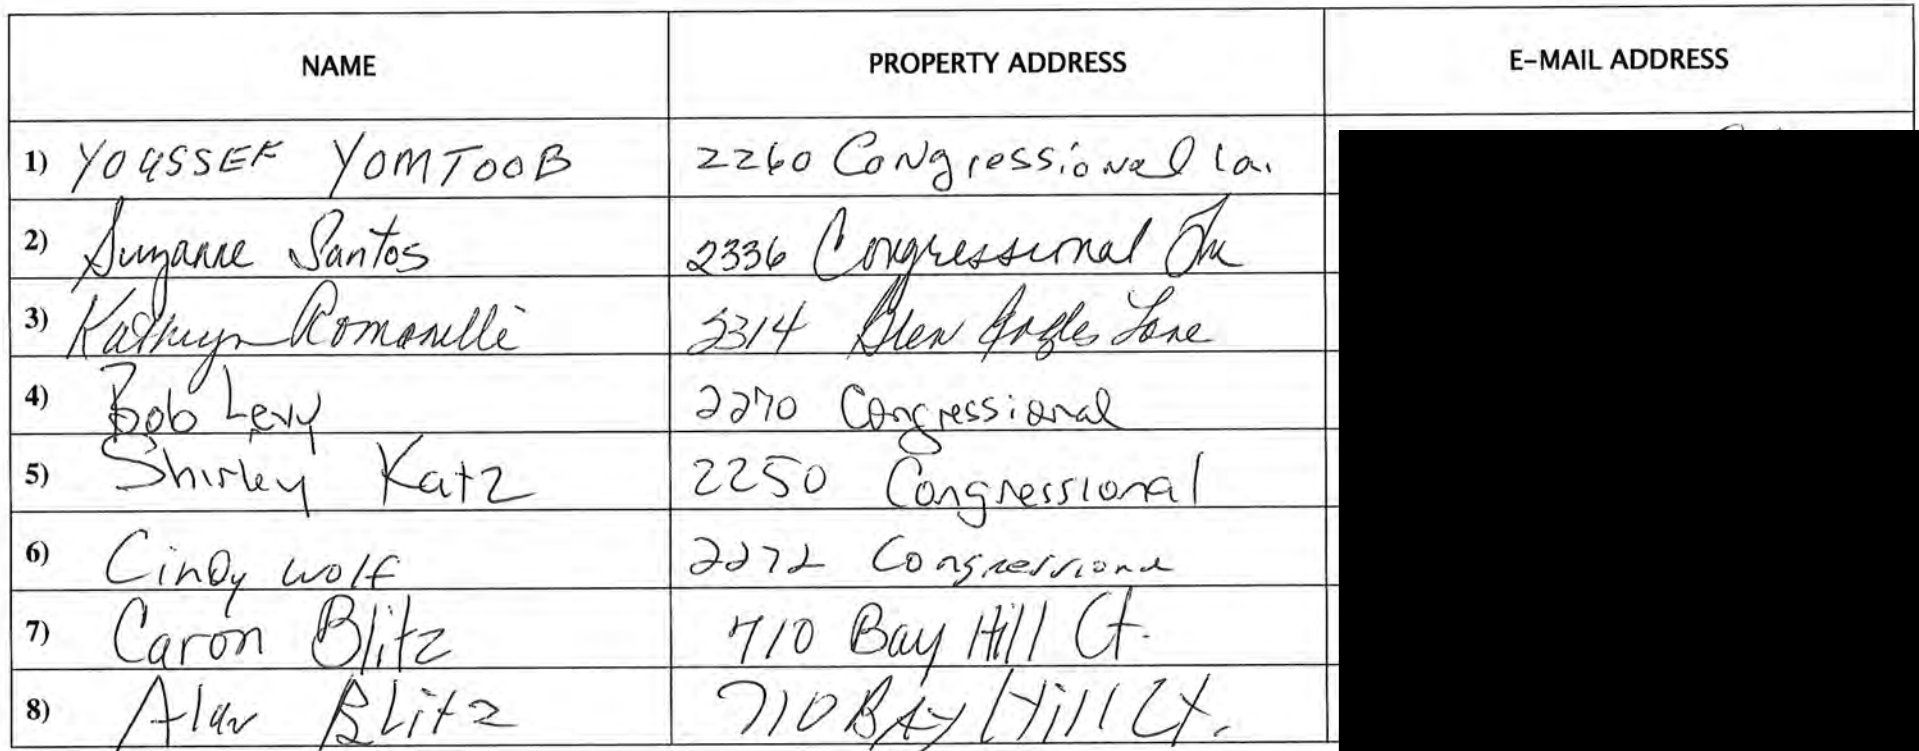 NAME PROPERTY ADDRESS E-MAIL ADDRESS
1) YOUSSEF YOMTOOB 2260 Congressional La.
2) Suzanne Santos 2336 Congressional Ln
3) Kathryn Romanelli 2314 Glen Eagles Lane
4) Bob Levy 2270 Congressional
5) Shirley Katz 2250 Congressional
6) Cindy Wolf 2272 Congressional
7) Caron Blitz 710 Bay Hill Ct.
8) Alan BLitz 710 BAY Hill Ct.